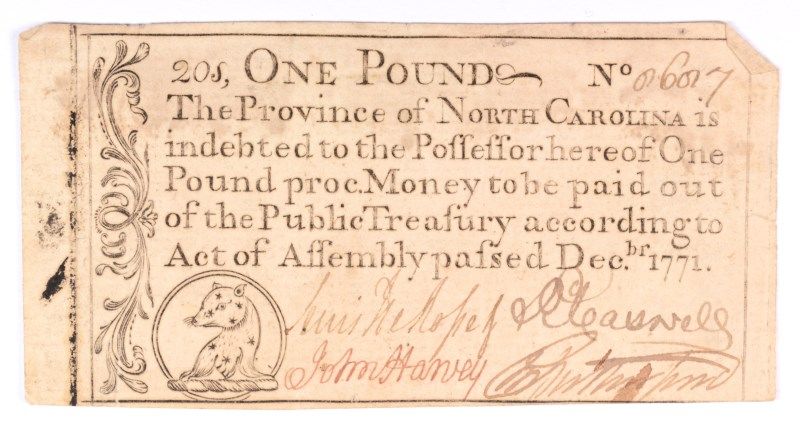 20s, ONE POUND Nº 8687
The Province of NORTH CAROLINA is
indebted to the Poſſeſſor hereof One
Pound proc. Money to be paid out
of the Public Treaſury according to
Act of Aſſembly paſsed Dec.br 1771.
Lewis De Roſſet Rd Caswell
John Harvey Rutherfurd